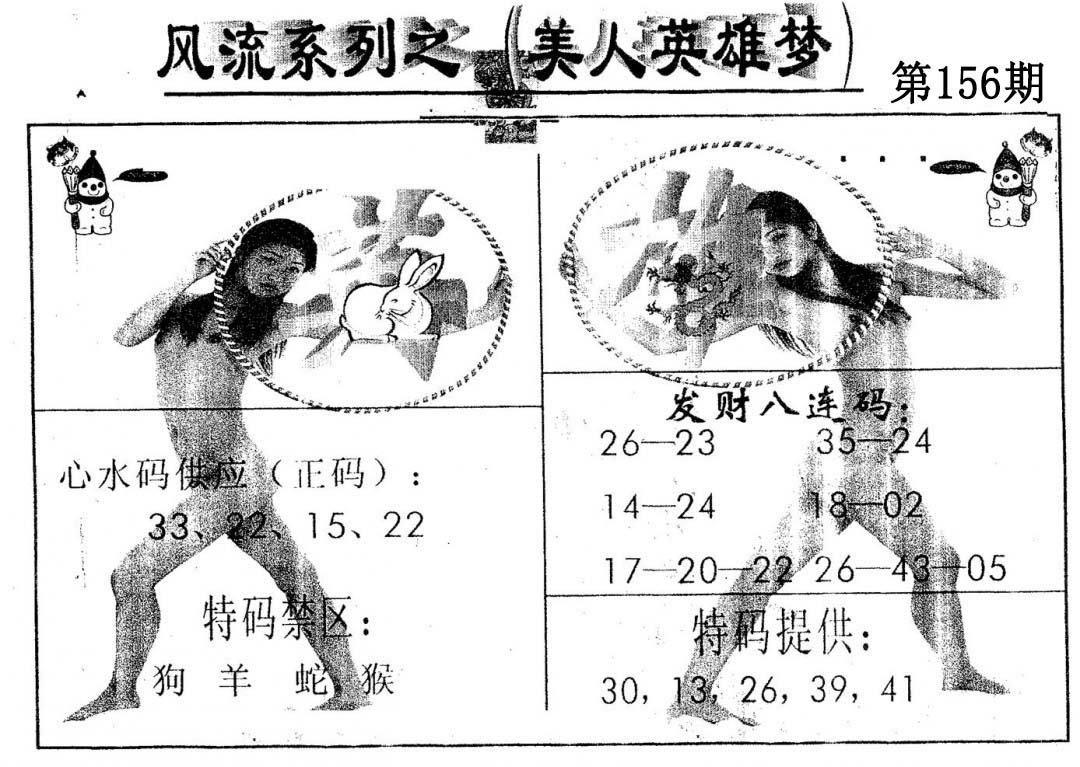 风流系列之（美人英雄梦）
第156期
心水码供应（正码）：
33、22、15、22
特码禁区：
狗 羊 蛇 猴
发财八连码：
26—23 35—24
14—24 18—02
17—20—22 26—43—05
特码提供：
30，13，26，39，41